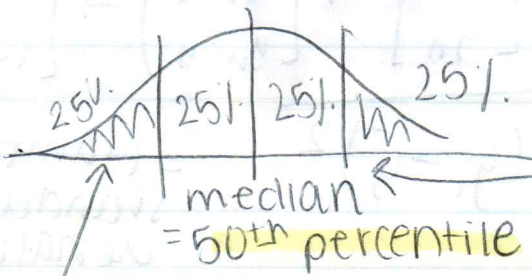 25%. 25%. 25%. 25%.
median
=50th percentile